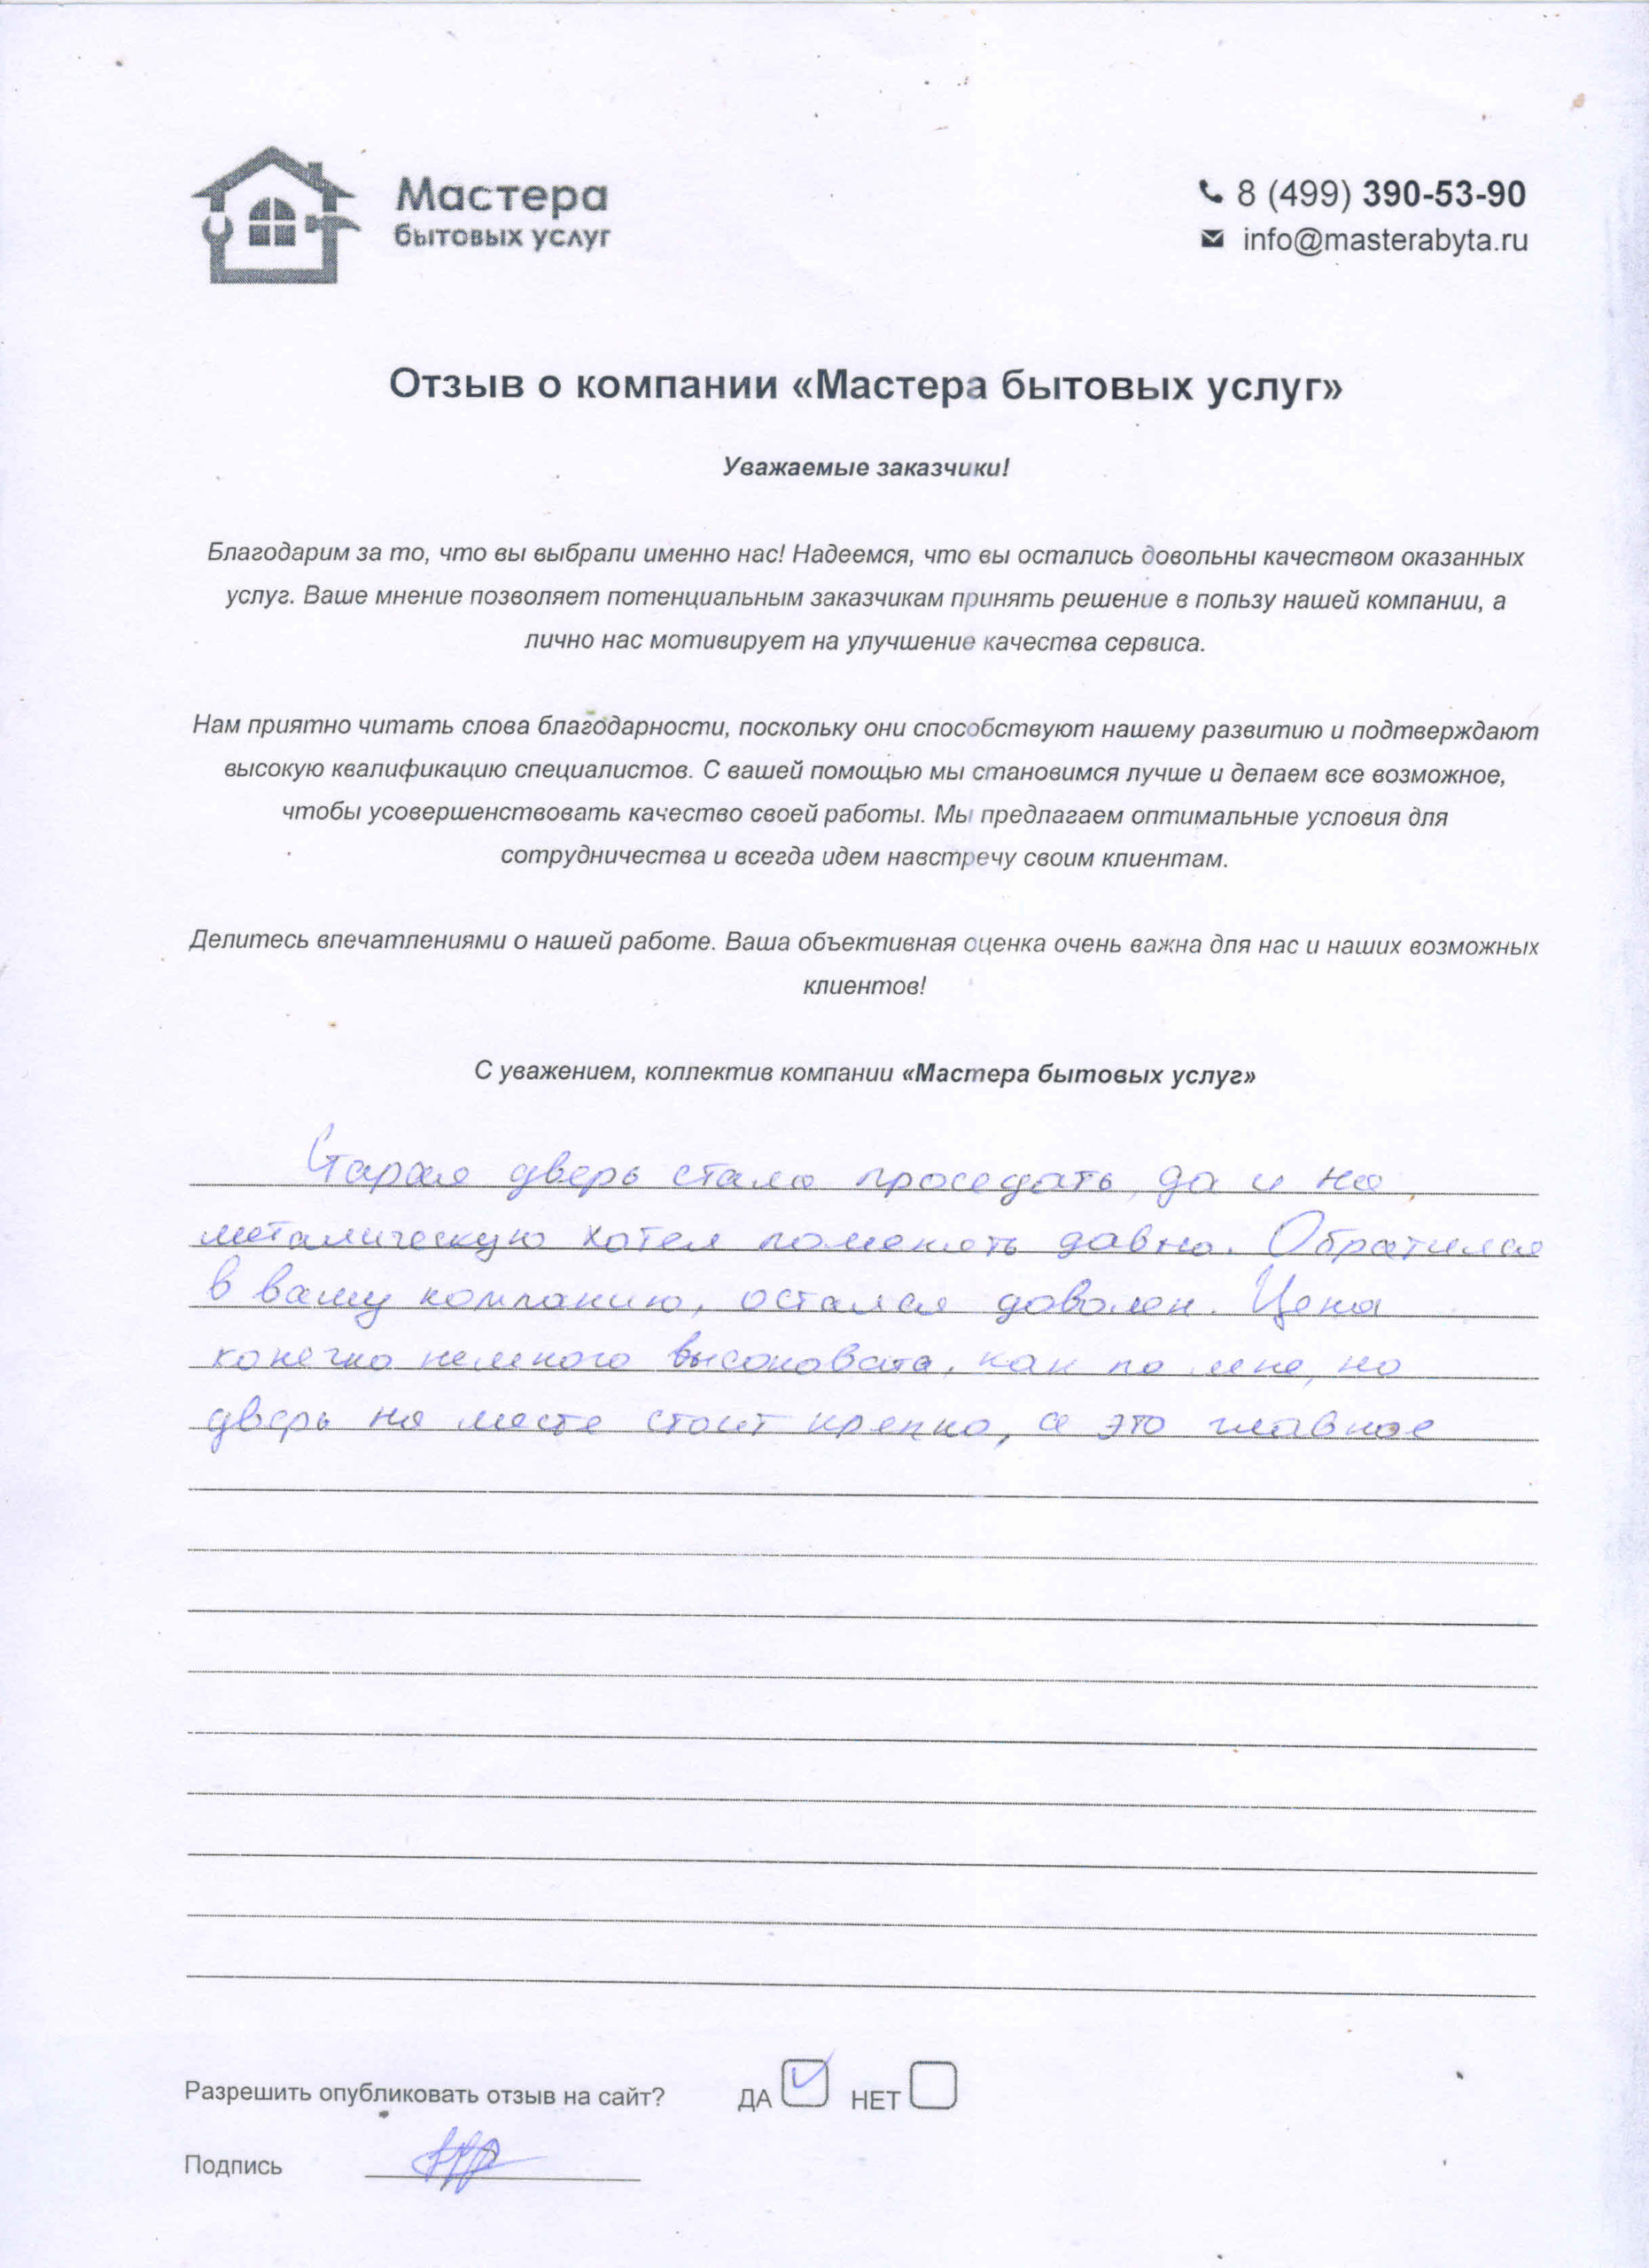 Мастера
бытовых услуг
8 (499) 390-53-90
info@masterabyta.ru
Отзыв о компании «Мастера бытовых услуг»
Уважаемые заказчики!
Благодарим за то, что вы выбрали именно нас! Надеемся, что вы остались довольны качеством оказанных
услуг. Ваше мнение позволяет потенциальным заказчикам принять решение в пользу нашей компании, а
лично нас мотивирует на улучшение качества сервиса.
Нам приятно читать слова благодарности, поскольку они способствуют нашему развитию и подтверждают
высокую квалификацию специалистов. С вашей помощью мы становимся лучше и делаем все возможное,
чтобы усовершенствовать качество своей работы. Мы предлагаем оптимальные условия для
сотрудничества и всегда идем навстречу своим клиентам.
Делитесь впечатлениями о нашей работе. Ваша объективная оценка очень важна для нас и наших возможных
клиентов!
С уважением, коллектив компании «Мастера бытовых услуг»
Старая дверь стала проседать, да и на
металическую хотел поменять давно. Обратился
в вашу компанию, остался доволен. Цена
конечно немного высоковата, как по мне, но
дверь на месте стоит крепко, а это главное
Разрешить опубликовать отзыв на сайт? ДА НЕТ
Подпись